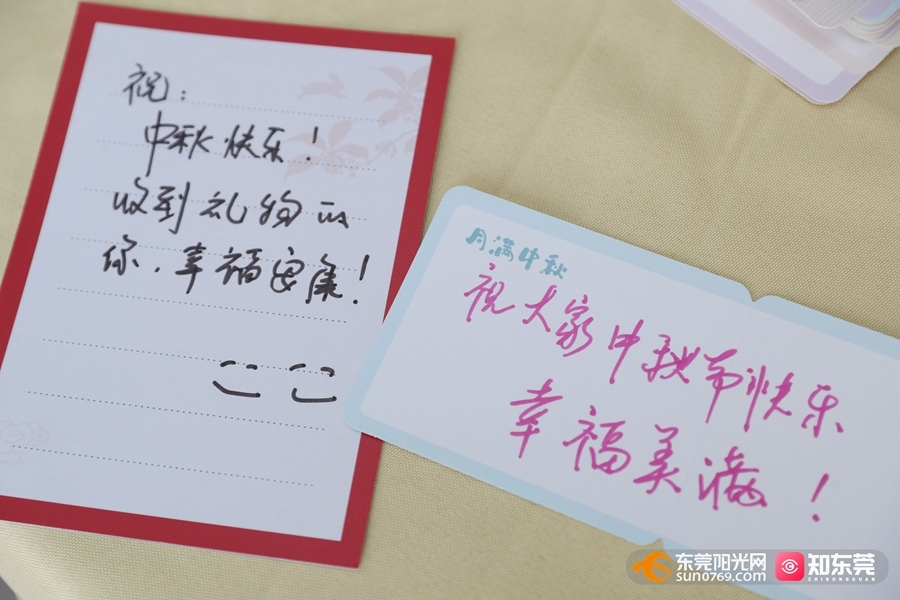 祝：
中秋快乐！
收到礼物的
你，幸福安康！
月满中秋
祝大家中秋节快乐
幸福美满！
东莞阳光网
sun0769.com
知东莞
ZHIDONGGUAN